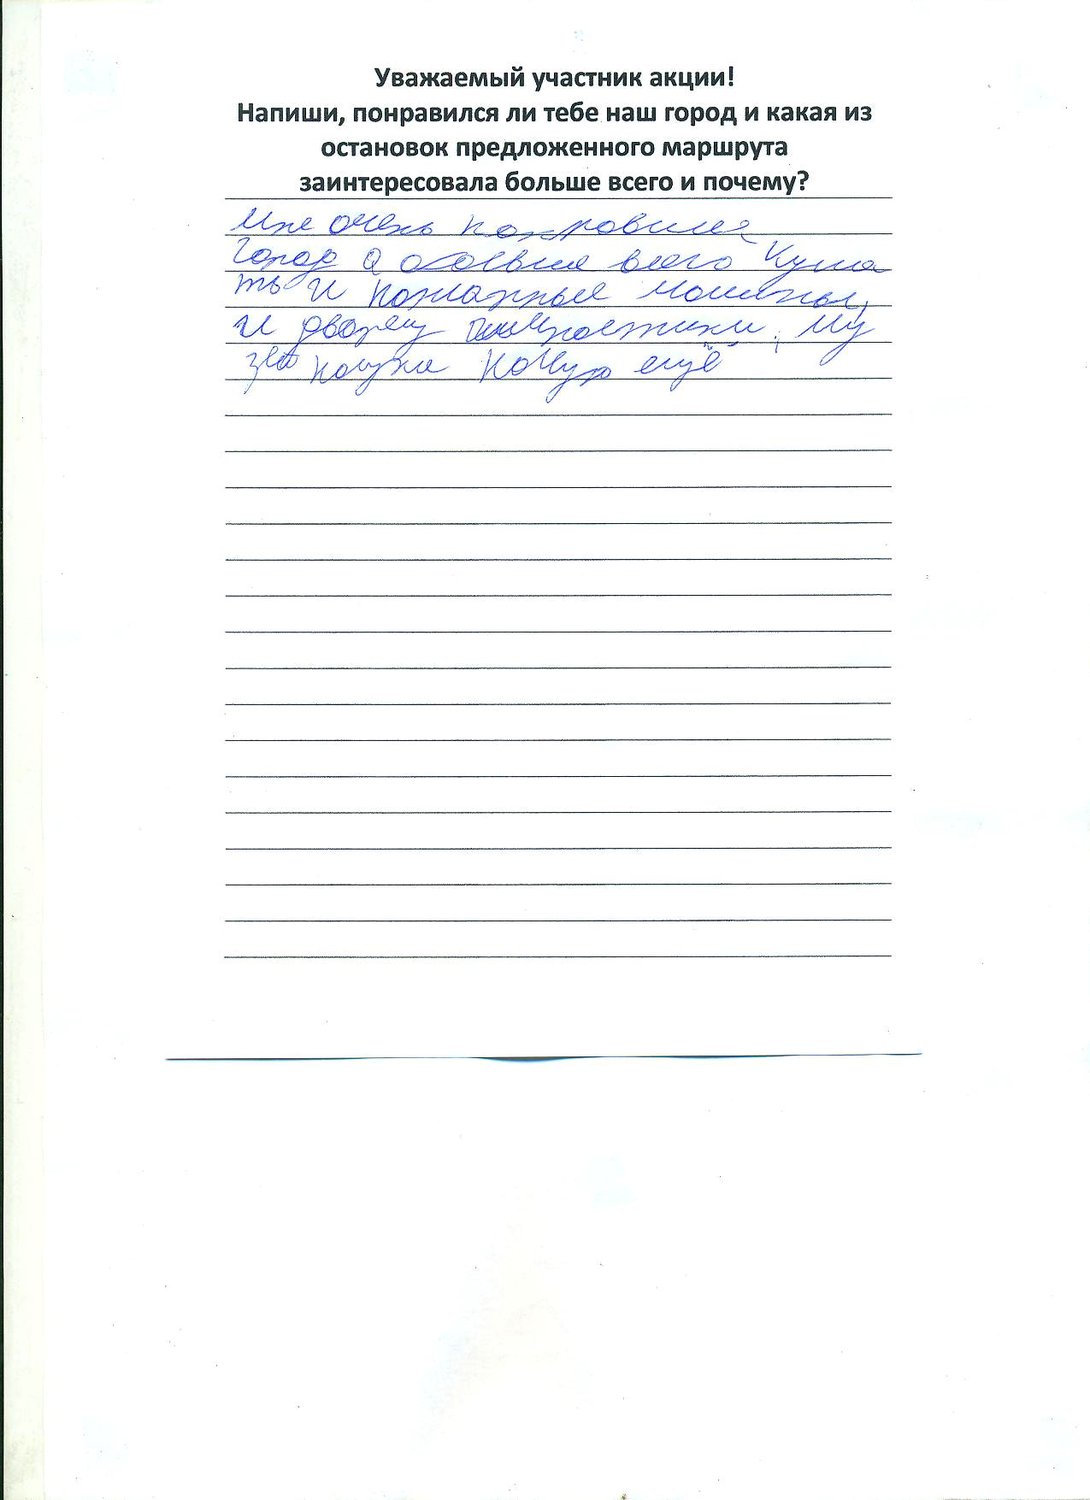 Уважаемый участник акции!
Напиши, понравился ли тебе наш город и какая из
остановок предложенного маршрута
заинтересовала больше всего и почему?
Мне очень
город а всего Куша
ть и пожарные машины,
и дворец, Му
зей науки Хочу ещё